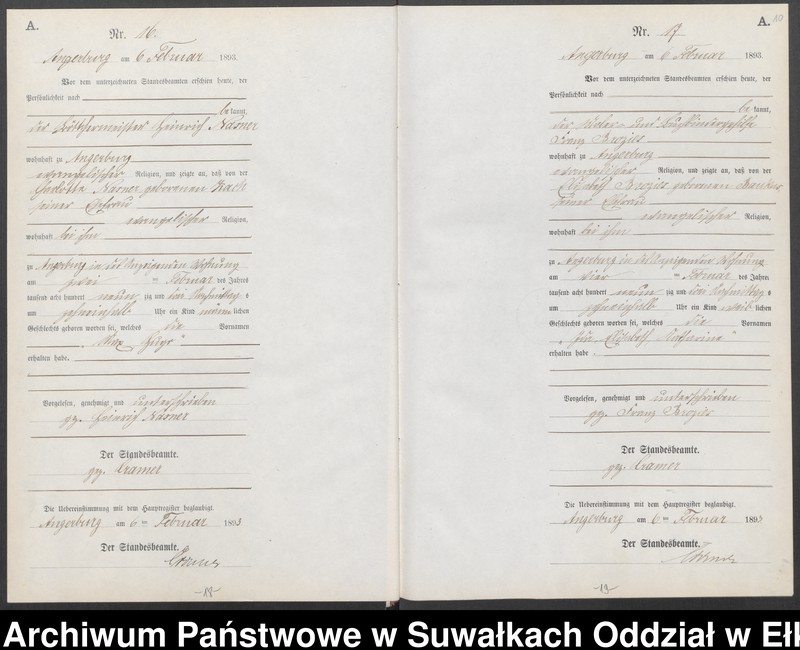 A.
Nr. 16.
Angerburg am 6 Februar 1893.
Vor dem unterzeichneten Standesbeamten erschien heute, der
Persönlichkeit nach
be kannt,
der Heinrich Kasner
wohnhaft zu Angerburg
evangelischer Religion, und zeigte an, daß von der
Charlotte Kasner geborenen
seiner Ehefrau
evangelischer Religion,
wohnhaft bei ihm
zu Angerburg in des Anzeigenden Wohnung
am zwei ten Februar des Jahres
tausend acht hundert neun zig und drei Vormittags
um Uhr ein Kind männ lichen
Geschlechts geboren worden sei, welches die Vornamen
„Max
erhalten habe.
Vorgelesen, genehmigt und unterschrieben
gez. Heinrich Kasner
Der Standesbeamte.
gez. Cramer
Die Uebereinstimmung mit dem Hauptregister beglaubigt.
Angerburg am 6 ten Februar 1893
Der Standesbeamte.
Cramer
A. 10
Nr. 17
Angerburg am 6 Februar 1893.
Vor dem unterzeichneten Standesbeamten erschien heute, der
Persönlichkeit nach
be kannt,
der
Franz Brozies
wohnhaft zu Angerburg
evangelischer Religion, und zeigte an, daß von der
Elisabeth Brozies geborenen
seiner Ehefrau
evangelischer Religion,
wohnhaft bei ihm
zu Angerburg in des Anzeigenden Wohnung
am vier ten Februar des Jahres
tausend acht hundert neun zig und drei Vormittags
um Uhr ein Kind weib lichen
Geschlechts geboren worden sei, welches die Vornamen
Elisabeth Katharina"
erhalten habe.
Vorgelesen, genehmigt und unterschrieben
gez. Franz Brozies
Der Standesbeamte.
gez. Cramer
Die Uebereinstimmung mit dem Hauptregister beglaubigt.
Angerburg am 6 ten Februar 1893
Der Standesbeamte.
Cramer
-18-
-19-
Archiwum Państwowe w Suwałkach Oddział w Ełk